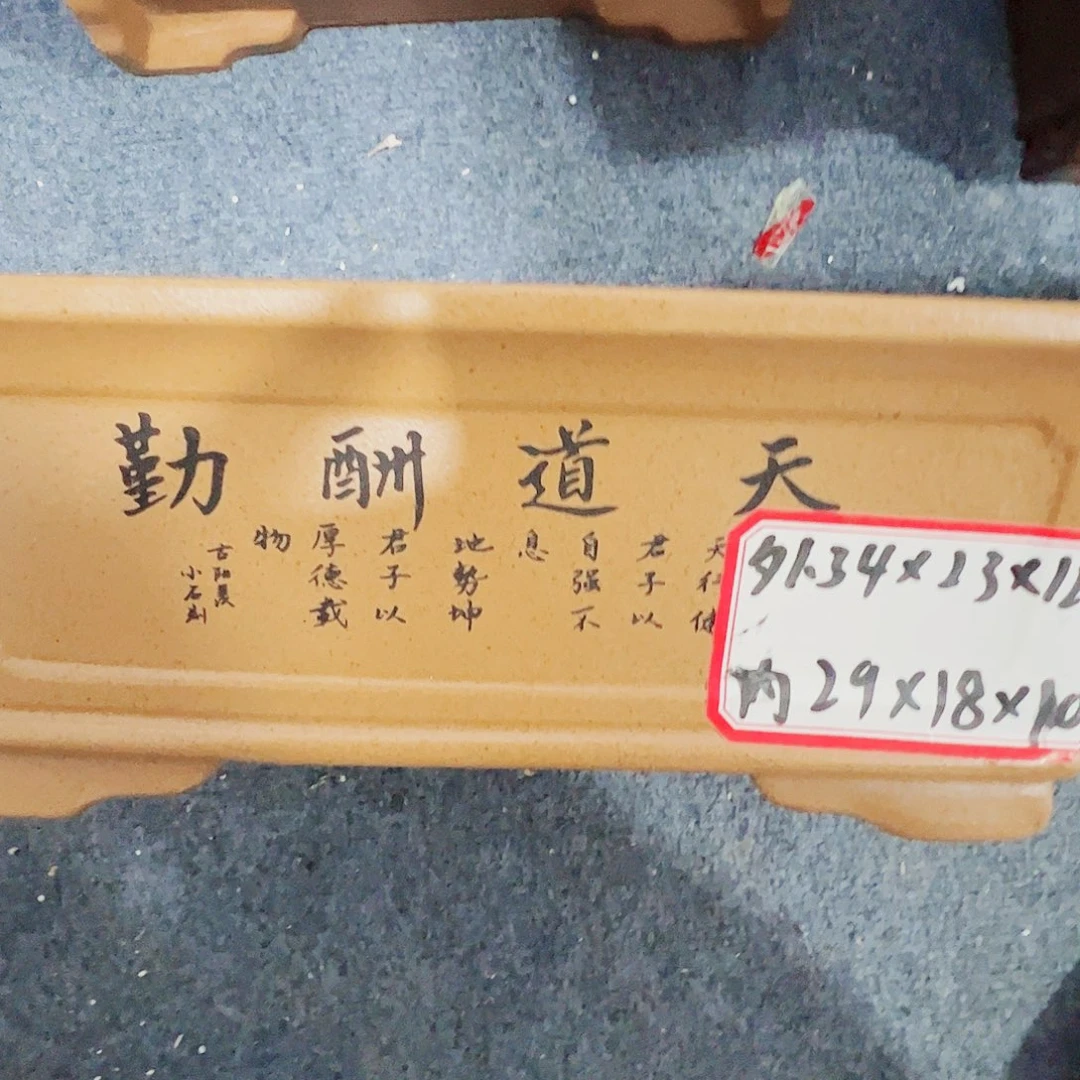 天道酬勤
天行健
君子以
自强不
息
地勢坤
君子以
厚德載
物
古阳羡
小石刻
外34×23×1
内29×18×10